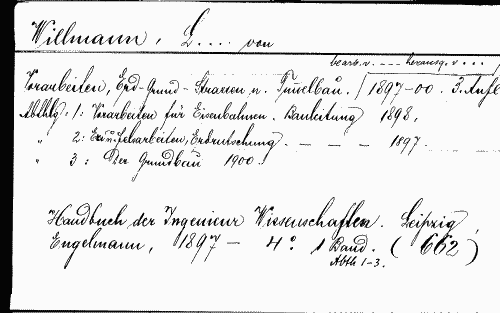 Willmann, L.... von
bearb. v. --- herausg. v...
Vorarbeiten, Erd- Grund- Strassen u. Tunnelbau. 1897-00. 3. Aufl
Abthlg. 1: Vorarbeiten für Eisenbahnen. Bauleitung 1898,
" 2: Erd u. Felsarbeiten, Erdrutschung. - - - 1897.
" 3: Der Grundbau 1900.
Handbuch der Ingenieur Wissenschaften. Leipzig,
Engelmann, 1897 - 4° 1 Band. (662)
Abth 1-3.